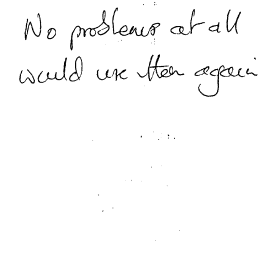 No problems at all
would use them again